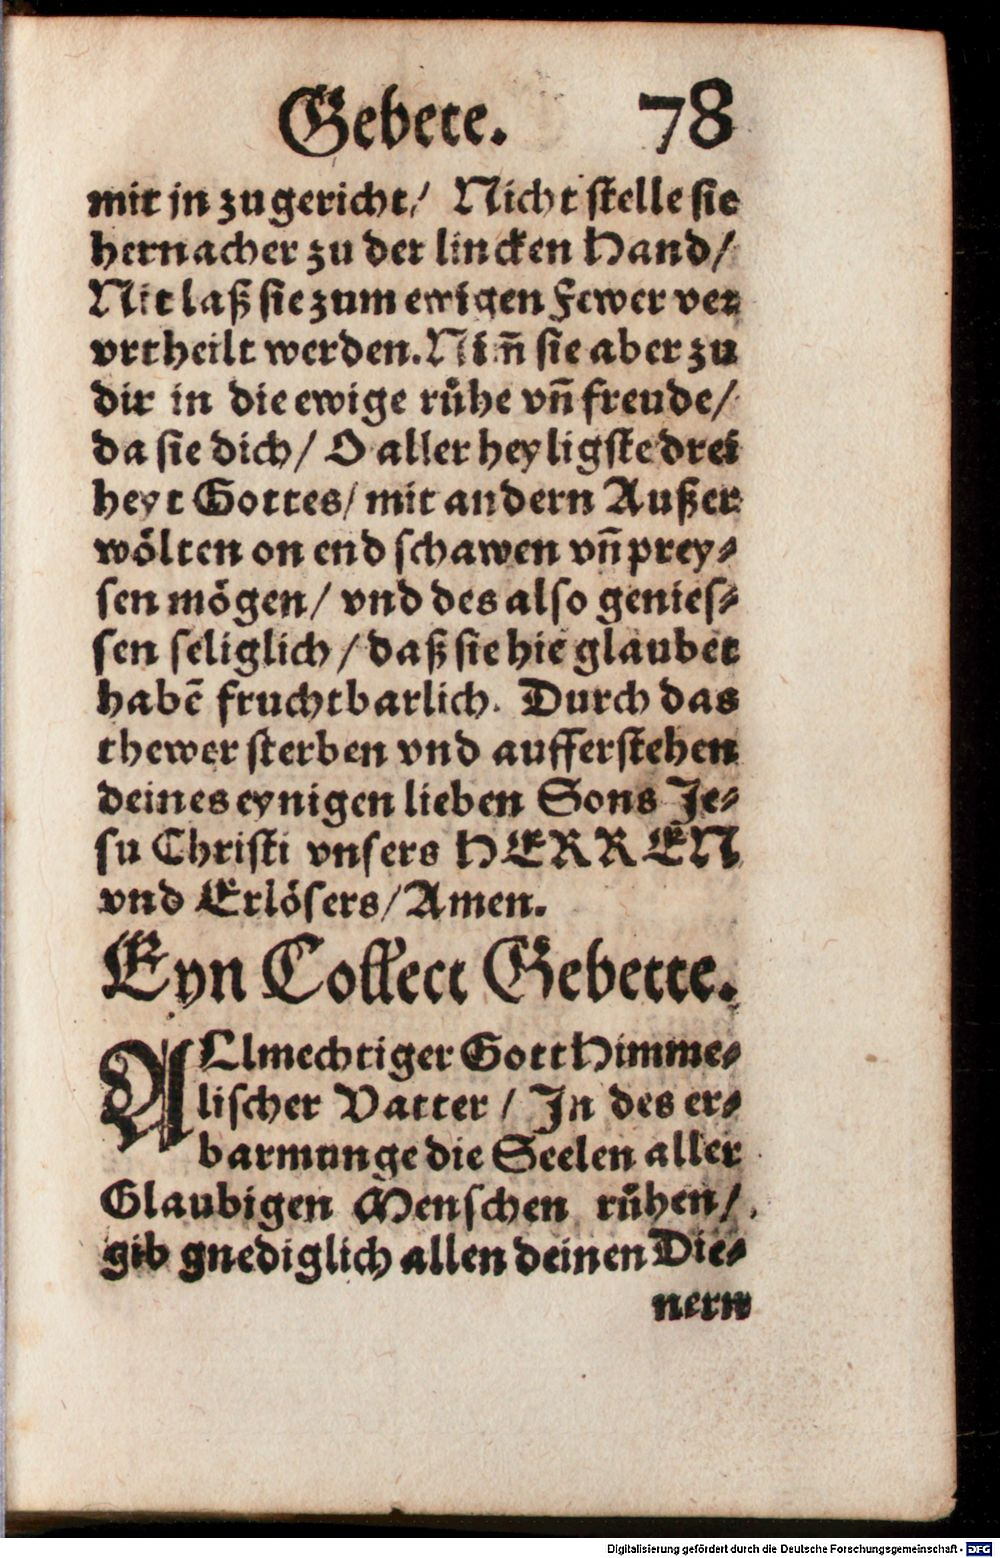 Gebete. 78
mit jn zu gericht/ Nicht stelle sie
hernacher zu der lincken Hand/
Nit laß sie zum ewigen Fewer ver
vrtheilt werden. Nim̃ sie aber zu
dir in die ewige růhe vñ freude/
da sie dich/ O aller heyligste drei
heyt Gottes/ mit andern Außer
wölten on end schawen vñ prey⸗
sen mögen/ vnd des also genies⸗
sen seliglich/ daß sie hie glaubet
habē fruchtbarlich. Durch das
thewer sterben vnd aufferstehen
deines eynigen lieben Sons Je⸗
su Christi vnsers HERREN
vnd Erlösers/ Amen.
Eyn Collect Gebette.
ALlmechtiger Gott Himme⸗
lischer Vatter/ In des er⸗
barmunge die Seelen aller
Glaubigen Menschen růhen/
gib gnediglich allen deinen Die⸗
nern
Digitalisierung gefördert durch die Deutsche Forschungsgemeinschaft - DFG